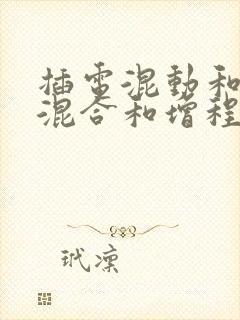 插电混動和
混合和增程
玳凛